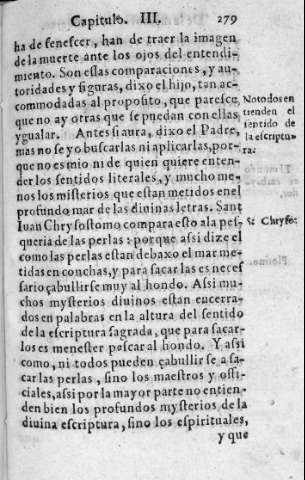 Capitulo. III. 279
ha de fenescer, han de traer la imagen
de la muerte ante los ojos del entendi-
miento. Son estas comparaciones, y au-
toridades y figuras, dixo el hijo, tan ac-
commodadas al proposito, que paresce
que no ay otras que se puedan con ellas
ygualar. Antes si aura, dixo el Padre,
mas no se yo buscarlas ni aplicarlas, por-
que no es mio ni de quien quiere enten-
der los sentidos literales, y mucho me-
nos los misterios que estan metidos en el
profundo mar de las diuinas letras. Sant
Iuan Chrysostomo compara esto a la pes-
queria de las perlas: porque assi dize el
como las perlas estan debaxo el mar me-
tidas en conchas, y para sacar las es neces
sario çabullirse muy al hondo. Assi mu-
chos mysterios diuinos estan encerra-
dos en palabras en la altura del sentido
de la escriptura sagrada, que para sacar-
los es menester pescar al hondo. Y assi
como, ni todos pueden çabullir se a sa-
car las perlas, sino los maestros y offi-
ciales, assi por la mayor parte no entien-
den bien los profundos mysterios de la
diuina escriptura, sino los espirituales,
y que
No todos en
tienden el
sentido de
la escriptu-
ra.
S. Chryso: